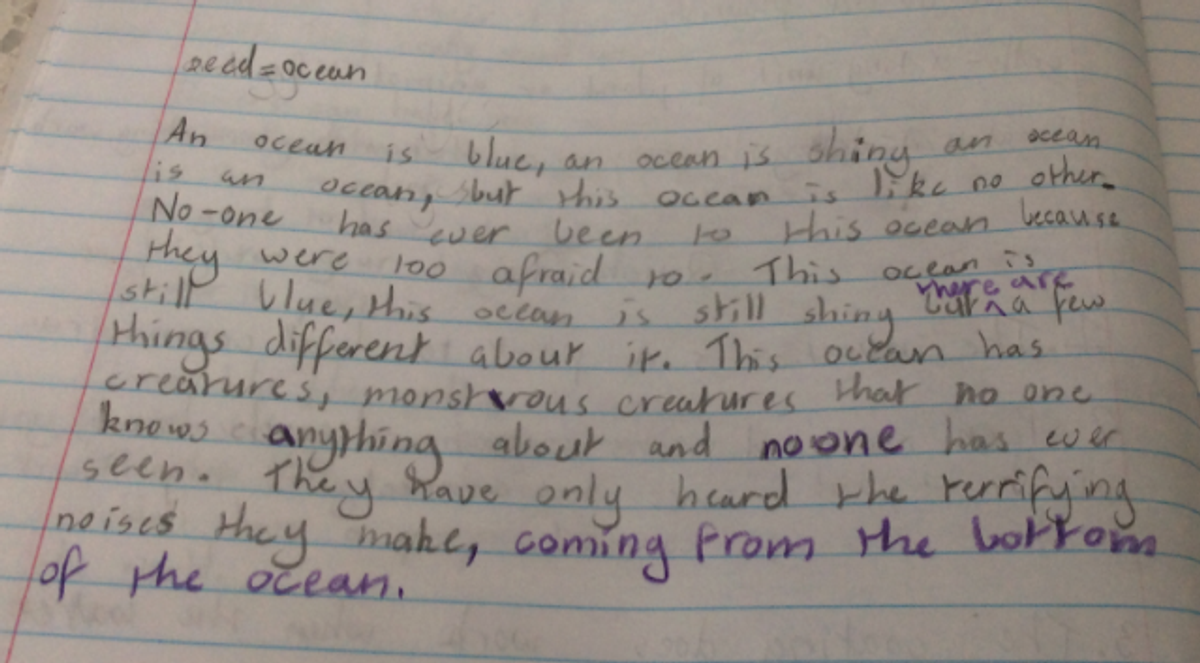 seed=ocean
An ocean is blue, an ocean is shiny an ocean
is an ocean, but this ocean is like no other.
No-one has ever been to this ocean because
they were too afraid to. This ocean is
still blue, this ocean is still shiny but there are a few
things different about it. This ocean has
creatures, monstrous creatures that no one
knows anything about and noone has ever
seen. They have only heard the terrifying
noises they make, coming from the bottom
of the ocean.